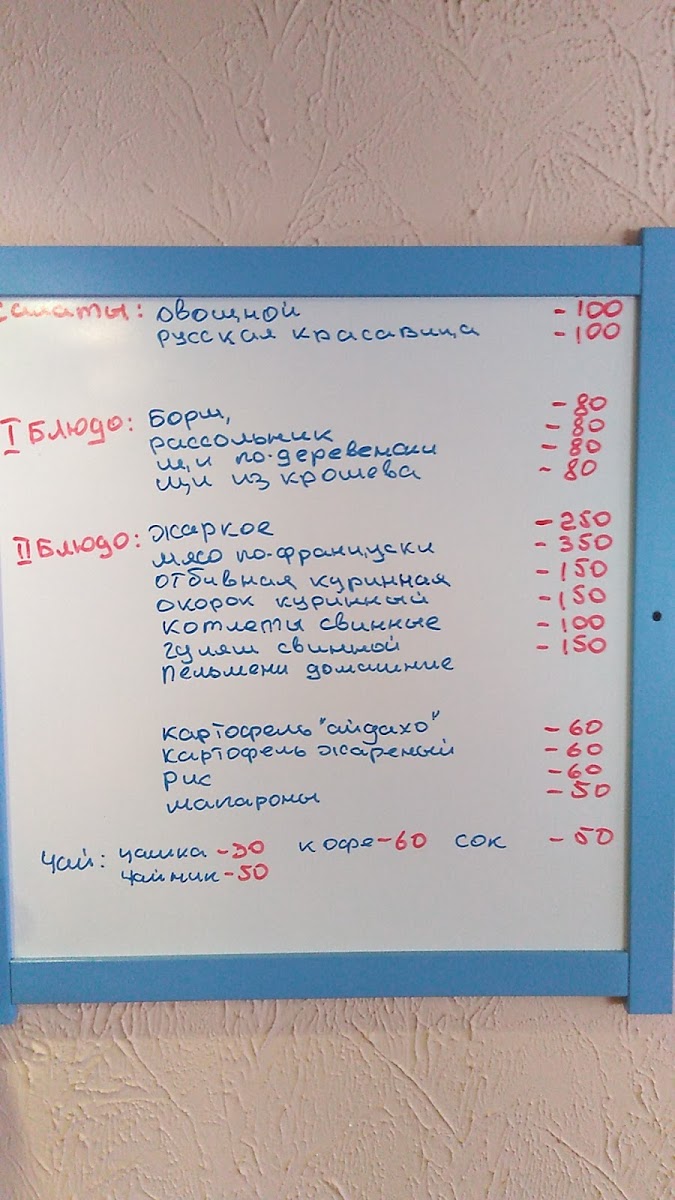 Салаты: овощной - 100
русская красавица - 100
I Блюдо: Борщ, - 80
рассольник - 80
щи по-деревенски - 80
щи из крошева - 80
II Блюдо: жаркое - 250
мясо по-француски - 350
отбивная куринная - 150
окорок куринный - 150
котлеты свинные - 100
гуляш свинной - 150
пельмени домашние
картофель "айдахо" - 60
картофель жареный - 60
рис - 60
макароны - 50
Чай: чашка - 30 кофе - 60 сок - 50
чайник - 50